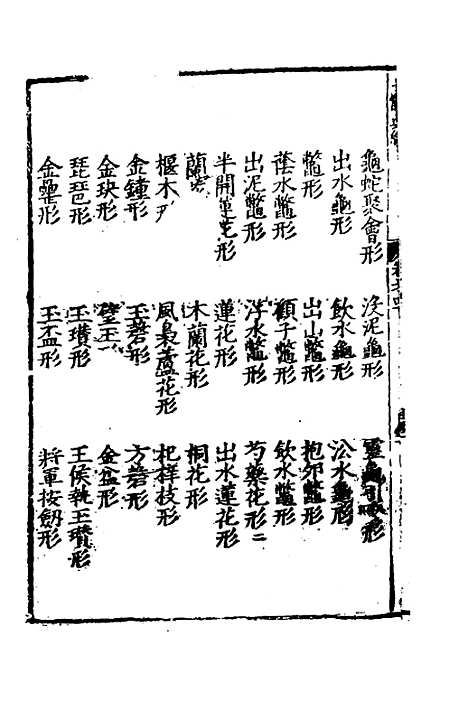 龜蛇聚會形 沒泥龜形 靈龜引氣形
出水龜形 飲水龜形 㳂水龜形
鱉形 出山鱉形 抱卵鱉形
蘸水鱉形 顧子鱉形 飲水鱉形
出泥鱉形 浮水鱉形 芍藥花形二
半開蓮花形 蓮花形 出水蓮花形
蘭 木蘭花形 桐花形
楃木 風裊蘆花形 枇杷枝形
金鐘形 玉磬形 方磬形
金玦形 璧玉 金盆形
琵琶形 玉瓚形 王侯執玉瓚形
金罍形 玉盃形 將軍按劔形